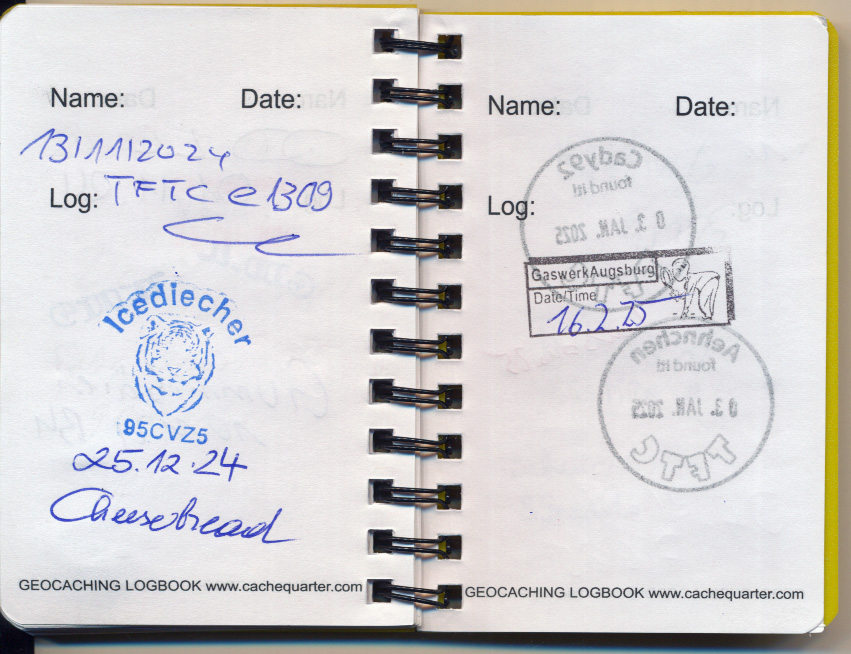 Name: Date:
13/11/2024
Log: TFTC e1309
Icediecher
95CVZ5
25.12.24
Cheesebread
GEOCACHING LOGBOOK www.cachequarter.com
Name: Date:
Cady92
found it!
Log:
03. JAN. 2025
GaswerkAugsburg
Date/Time
16.2.25
Aehnchen
found it!
03. JAN. 2025
TFTC
GEOCACHING LOGBOOK www.cachequarter.com